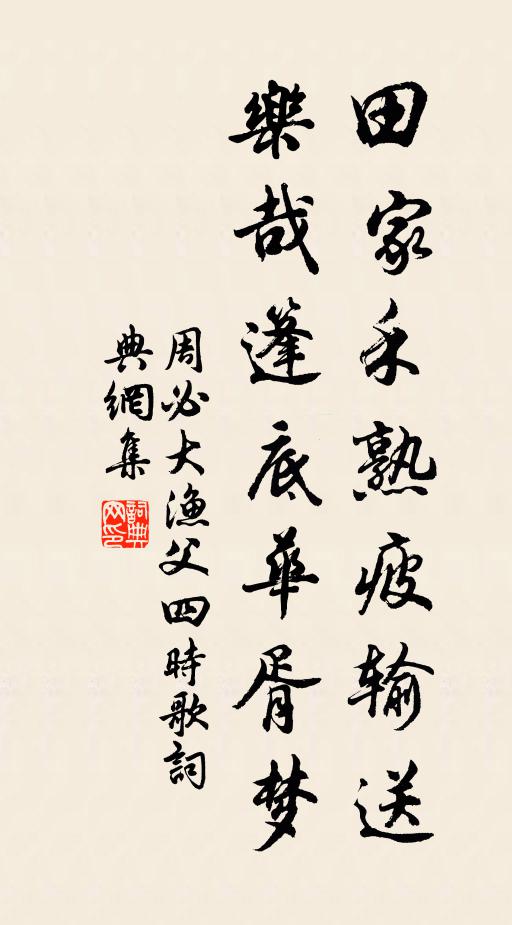 田家禾熟疲输送
樂哉篷底華胥梦
周必大漁父四時歌詞
典網集
詞典
网印